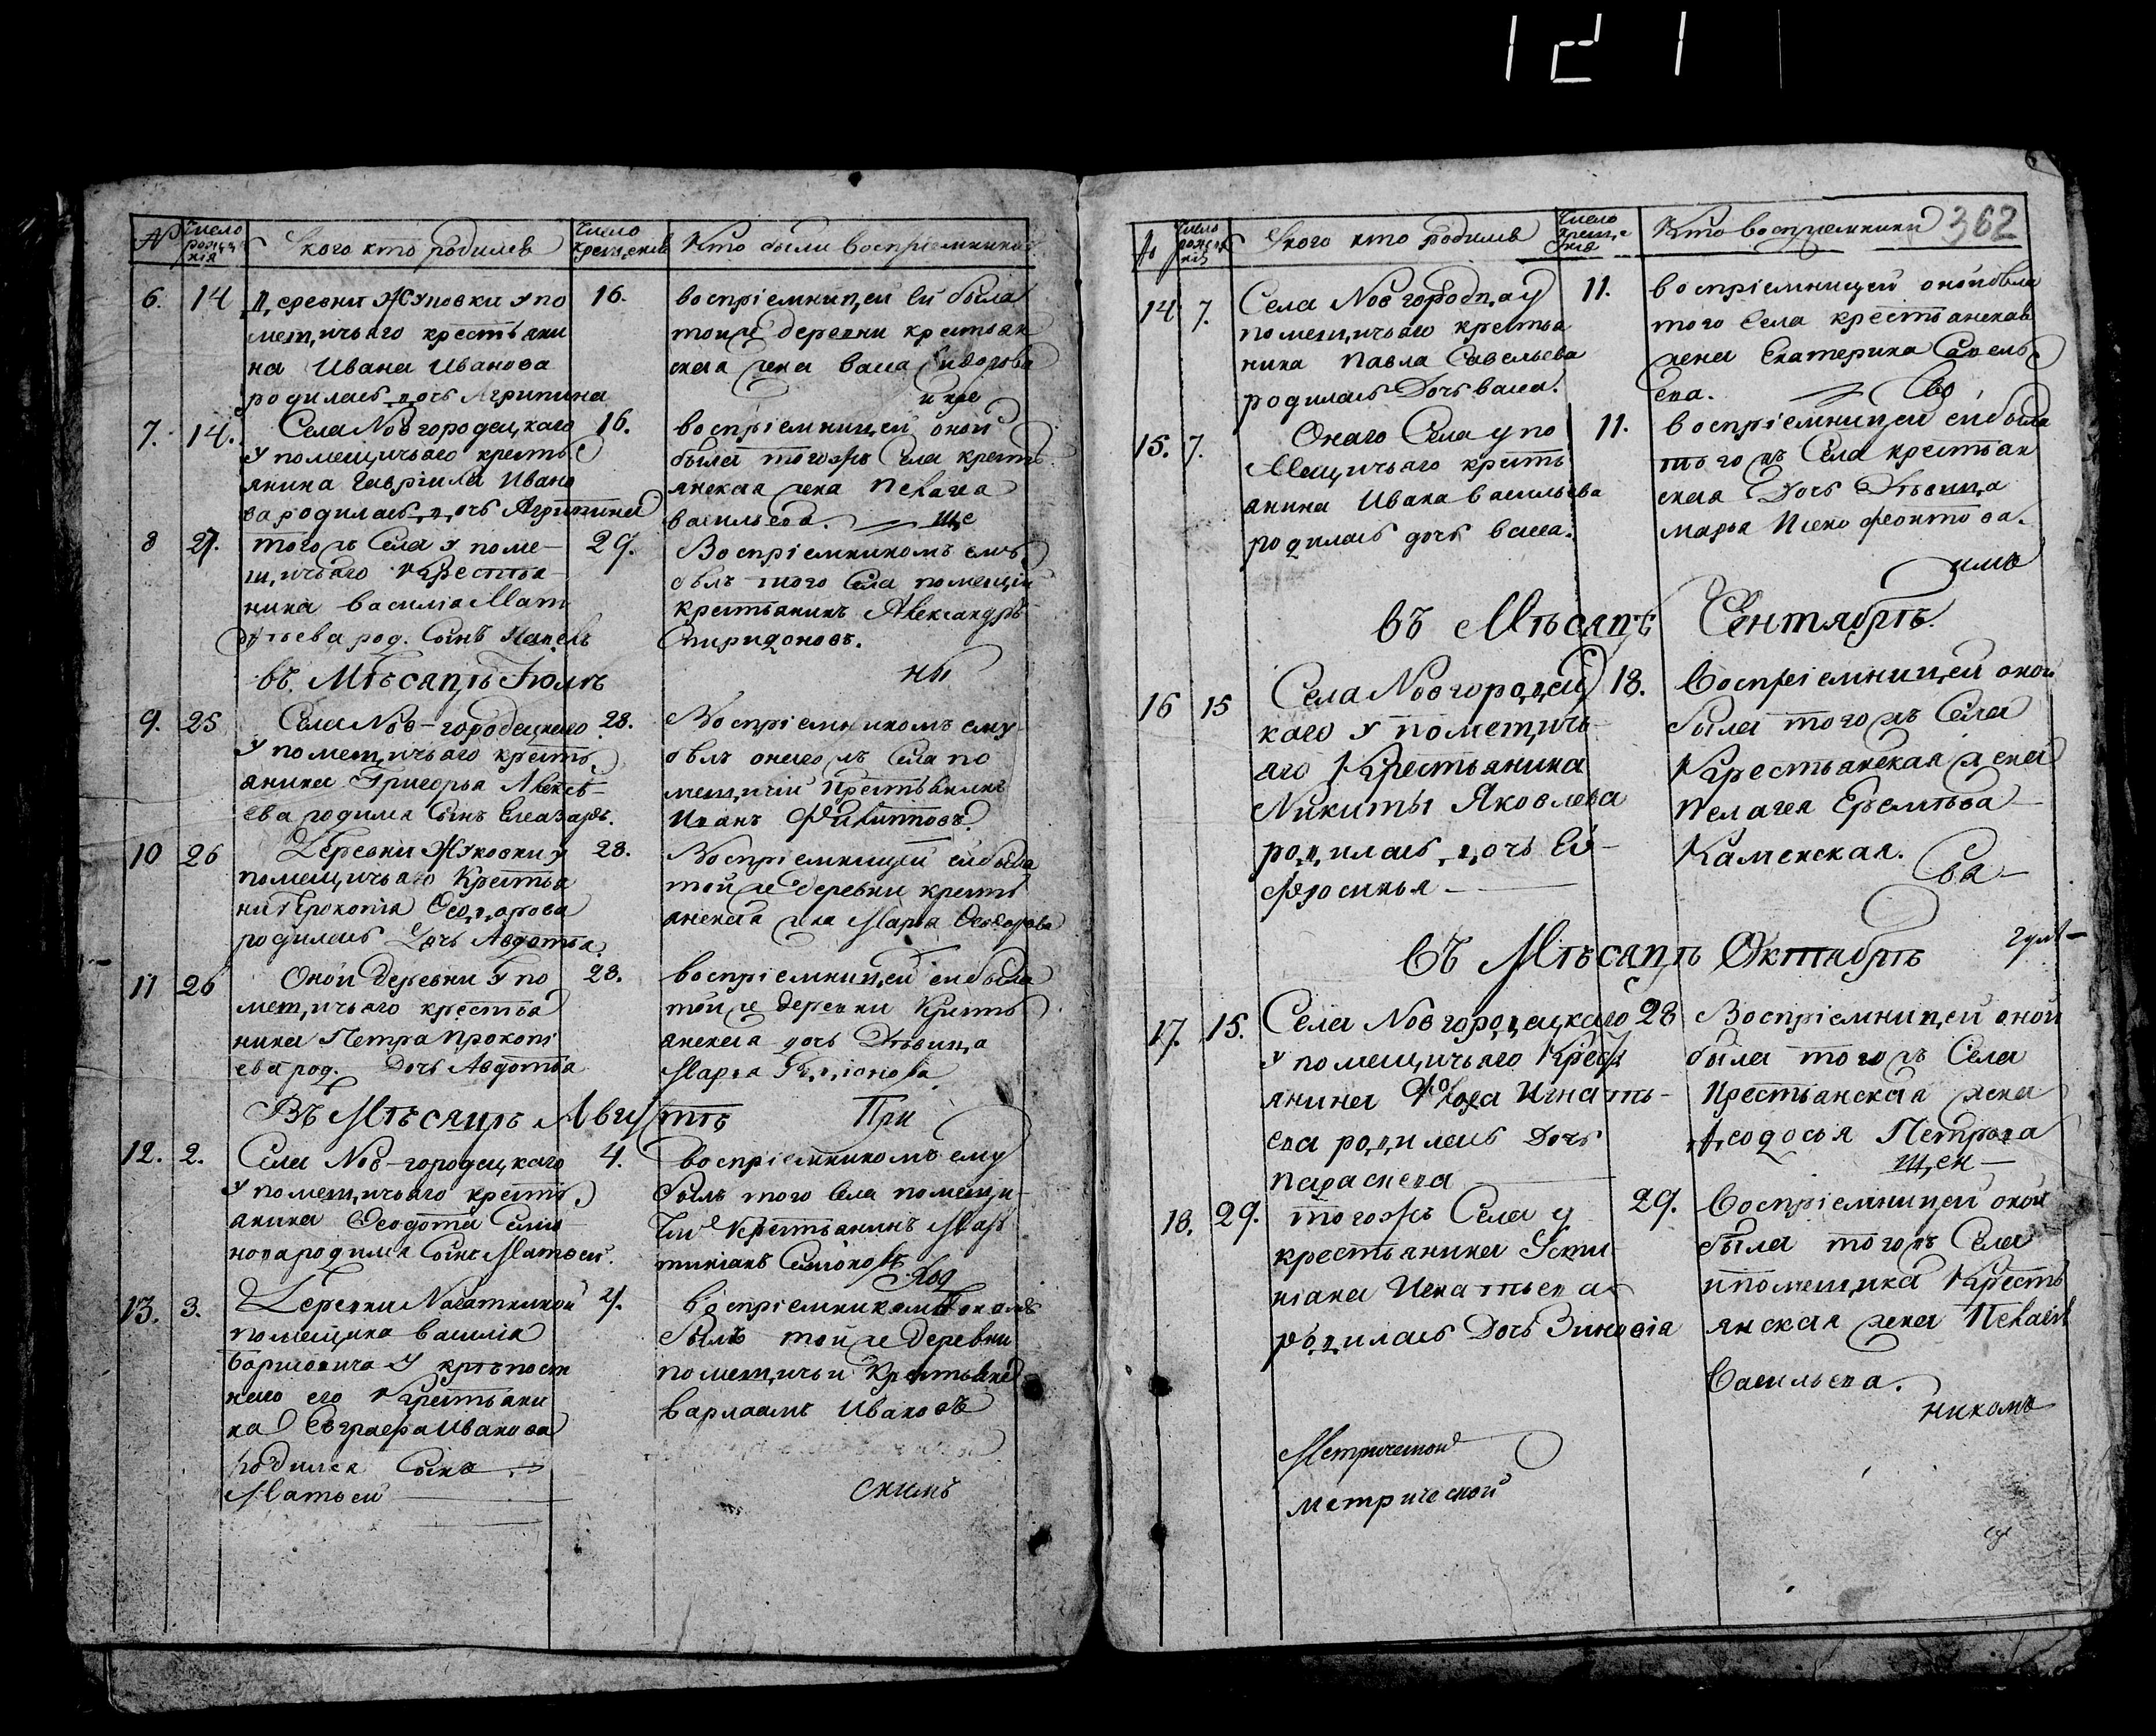 121
№
Число рожденія
У кого кто родился
Число крещенія
Кто были воспріемники
6. 14
деревни Жуковки у по
мещичьаго крестьяни
на Ивана Иванова
родилась дочь Агрипина
16.
воспріемницей ей была
тойже деревни крестьян
ская жена Васса
7. 14.
Села Новгородецкаго
у помещичьаго кресть
янина Гавріила Ивано
ва родилась дочь Агрипина
16.
воспріемницей оной
была тогожъ Села кресть
янская жена Пелагея
васильева.
8 27.
тогожъ Села у поме-
щичьаго Крестья
нина василія Мат
фѣева род. Сынъ
29.
Воспріемникомъ ему
былъ того Села помещич
крестьянинъ Александръ
Спиридоновъ.
ны
въ Мѣсяцѣ Іюлѣ
9. 25
Села Нов-городецкаго
у помещичьаго кресть
янина Григорья Алексѣ-
ева родился Сынъ Елеазаръ.
28.
Воспріемникомъ ему
былъ оногожъ Села по
мещичій Крестьянинъ
Иванъ Филиповъ.
10 26
Деревни Жуковки у
помещичьаго Крестья
нина Прокопія Ѳедорова
родилась Дочь Авдотья
28.
Воспріемницей ей была
тойже деревни кресть
янская жена Марья Ѳеодорова
11 26
Оной Деревни у по
мещичьаго крестья
нина Петра Прокопі
ева род. Дочь Авдотья
28.
воспріемницей ей была
тойже деревни Кресть
янская дочь Дѣвица
Марѳа
Въ Мѣсяцѣ Августѣ
При
12. 2.
Села Нов-городецкаго
у помещичьаго кресть
янина Ѳеодота Семіо
нова родился Сынъ Матвей.
4.
воспріемникомъ ему
былъ того Села помещи-
чій Крестьянинъ Мар
тиніанъ Семіоновъ
13. 3.
Деревни
помещика василія
Борисовича у крѣпост
наго его Крестьяни
на Евграфа Иванова
родился Сынъ
Матвей
4.
воспріемникомъ
былъ тойже Деревни
помещичьи Крестьянин
варлаамъ Ивановъ
скимъ
6
№
Число рожденія
У кого кто родился
Число крещенія
Кто воспріемники
362
14 7.
Села Новгородца у
помещичьаго крестья
нина Павла Савельева
родилась Дочь васса.
11.
воспріемницей оной была
того Села крестьянская
жена Екатерина Савель
ева.
15. 7.
Онаго Села у по
мещичьаго кресть
янина Ивана васильева
родилась дочь васса.
11.
воспріемницей ей была
тогожъ Села крестьян
ская Дочь Дѣвица
марья Ксенофонтова.
въ Мѣсяцѣ Сентябрѣ.
16 15
Села Новгородец
каго у помещичь-
аго Крестьянина
Никиты Яковлева
родилась дочь Ев-
фросинья
18.
Воспріемницей оной
была тогожъ Села
Крестьянская жена
Пелагея Еремѣева
Каменская.
Сва-
въ Мѣсяцѣ Октябрѣ
17. 15.
Села Новгородецкаго
у помещичьаго Крест
янина Игнать-
ева родилась Дочь
параскева
28
Воспріемницей оной
была тогожъ Села
Крестьянская жена
Ѳеодосья Петрова
щен-
18. 29.
тогожъ Села у
крестьянина Усти
ніана Игнатьева
родилась Дочь Зиновія
29.
Воспріемницей оной
была тогожъ Села
помещика Кресть
янская жена Пелагея
васильева.
никомъ
Метрической
метрической